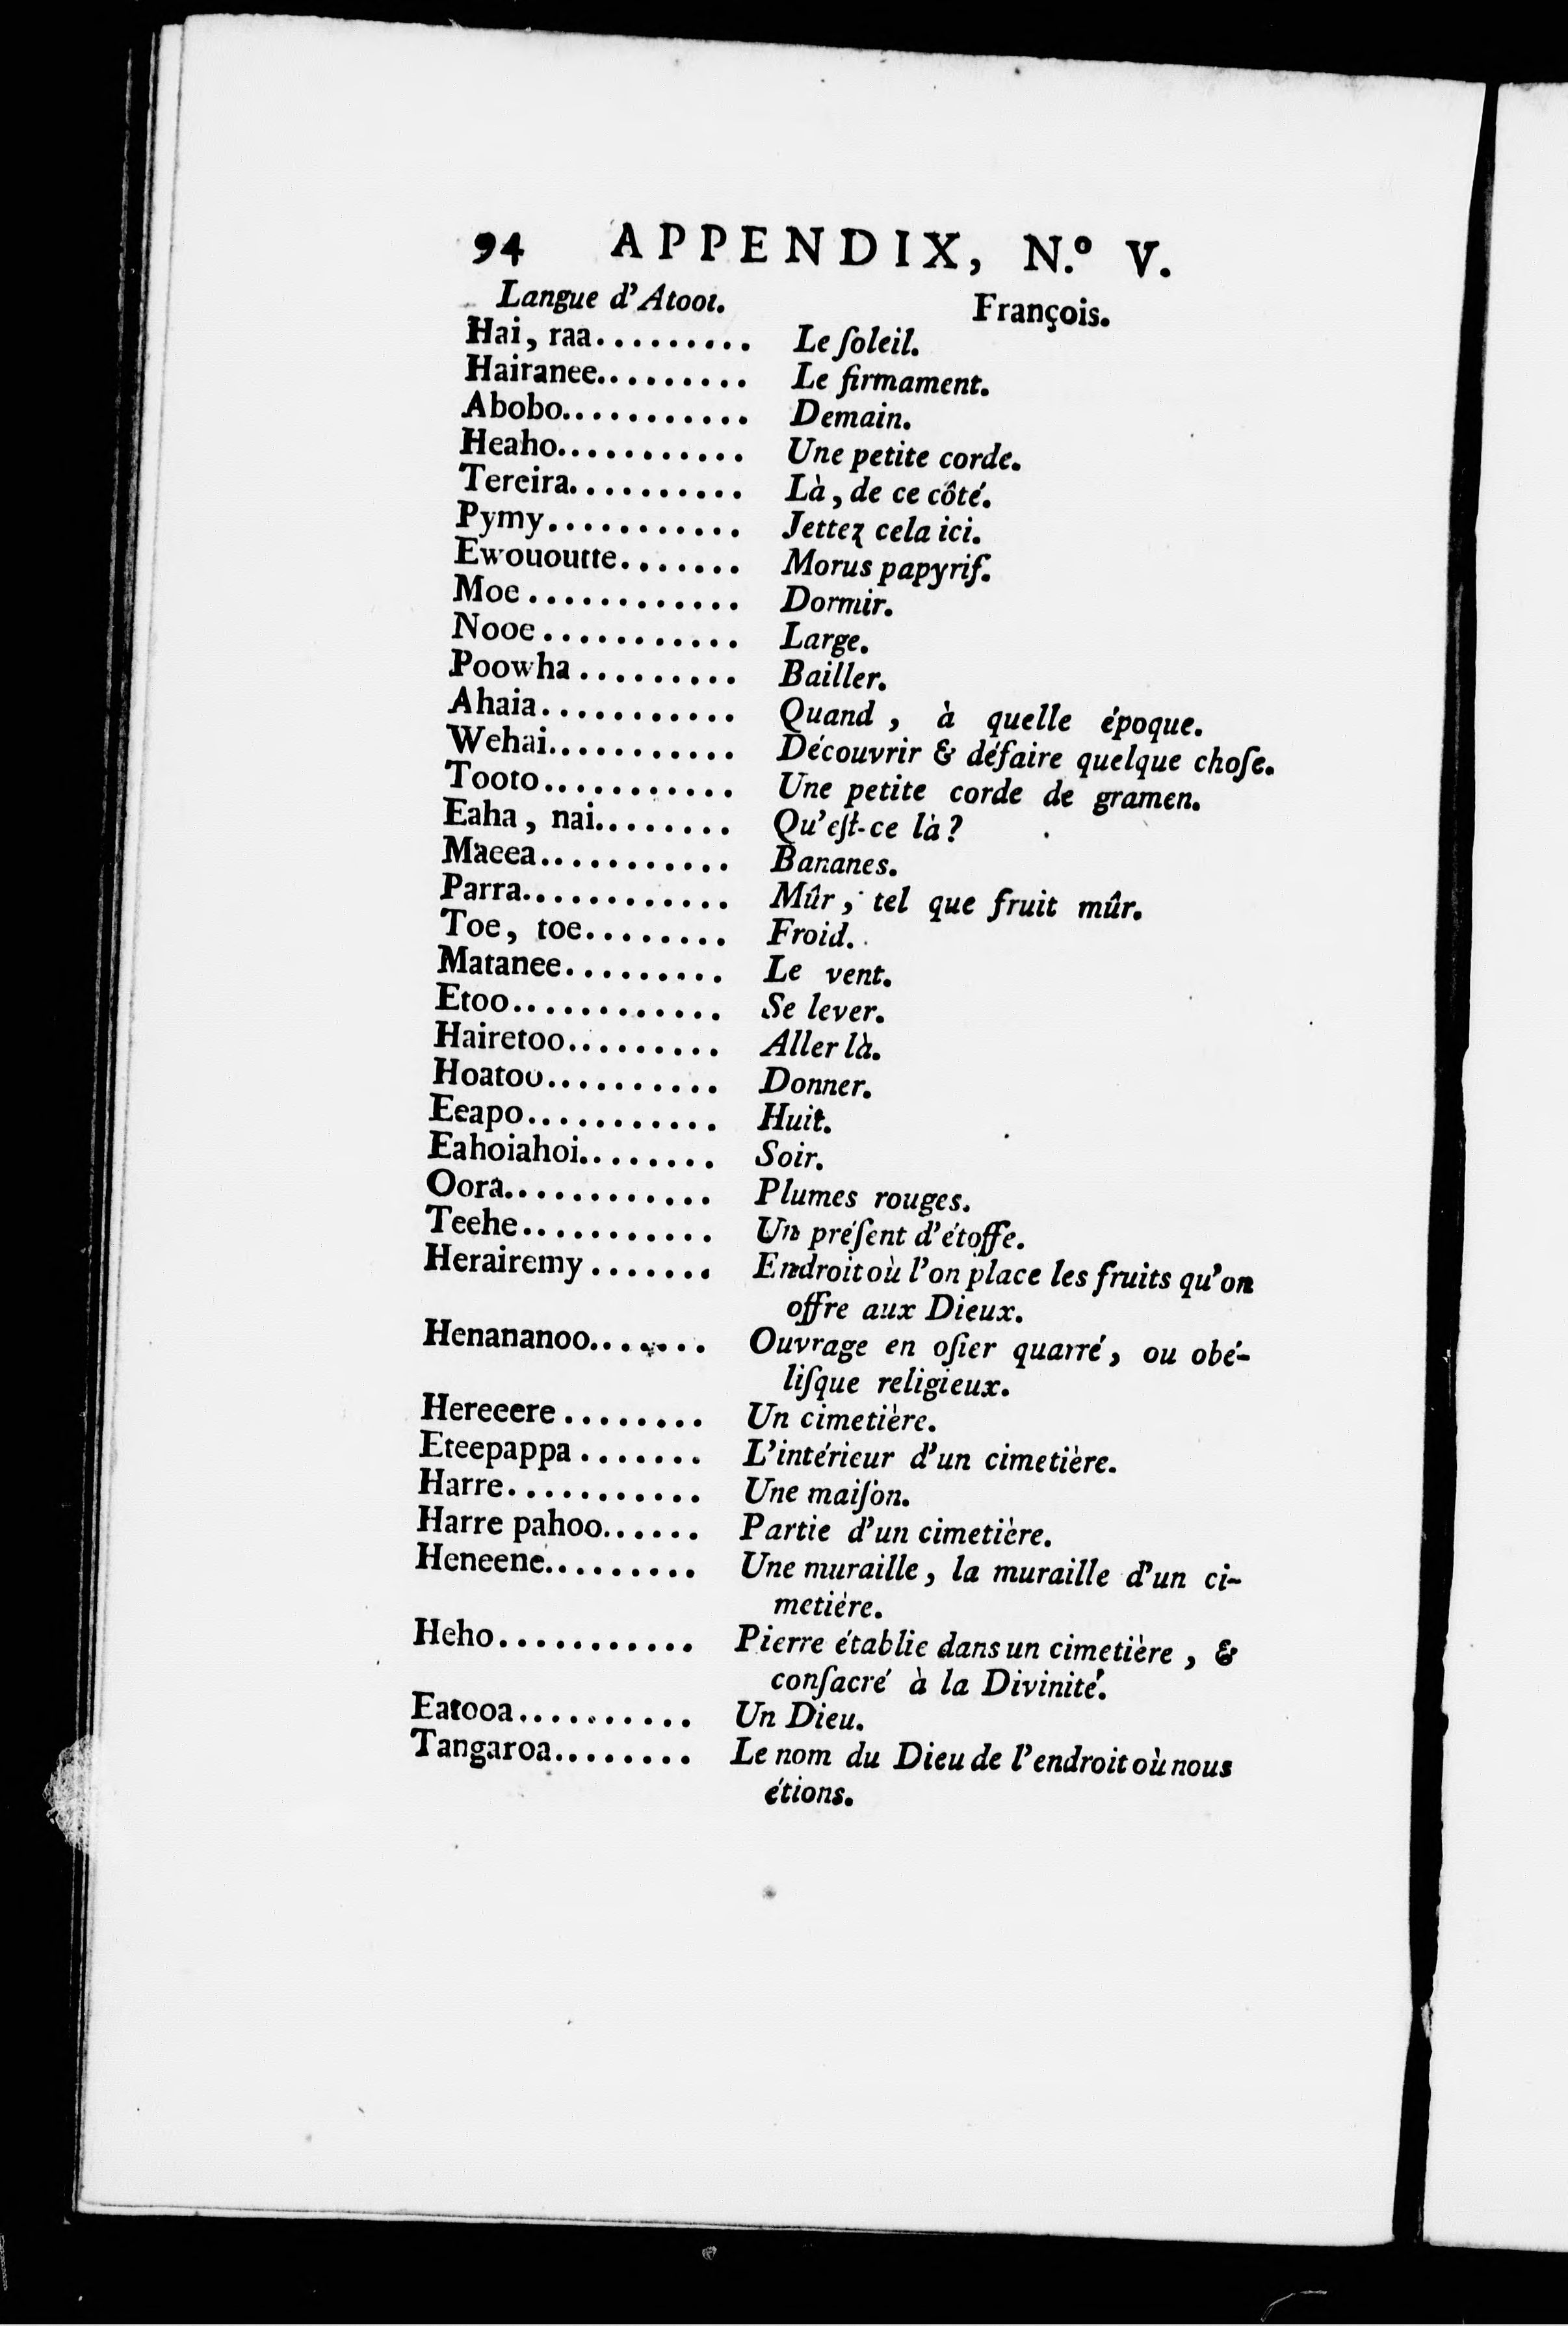 94 APPENDIX, N.º V.
Langue d'Atooi. François.
Hai, raa......... Le ſoleil.
Hairanee......... Le firmament.
Abobo........... Demain.
Heaho........... Une petite corde.
Tereira.......... Là, de ce côté.
Pymy........... Jettez cela ici.
Ewououtte....... Morus papyriſ.
Moe............ Dormir.
Nooe........... Large.
Poowha......... Bailler.
Ahaia........... Quand, à quelle époque.
Wehai........... Découvrir & défaire quelque choſe.
Tooto........... Une petite corde de gramen.
Eaha, nai........ Qu'eſt-ce là?
Maeea........... Bananes.
Parra............ Mûr, tel que fruit mûr.
Toe, toe........ Froid.
Matanee......... Le vent.
Etoo............ Se lever.
Hairetoo......... Aller là.
Hoatou.......... Donner.
Eeapo........... Huit.
Eahoiahoi........ Soir.
Oora............ Plumes rouges.
Teehe........... Un préſent d'étoffe.
Herairemy....... Endroit où l'on place les fruits qu'on
offre aux Dieux.
Henananoo....... Ouvrage en oſier quarré, ou obé-
liſque religieux.
Hereeere........ Un cimetière.
Eteepappa....... L'intérieur d'un cimetière.
Harre........... Une maiſon.
Harre pahoo...... Partie d'un cimetière.
Heneene......... Une muraille, la muraille d'un ci-
metière.
Heho........... Pierre établie dans un cimetière, &
conſacré à la Divinité.
Eatooa.......... Un Dieu.
Tangaroa........ Le nom du Dieu de l'endroit où nous
étions.